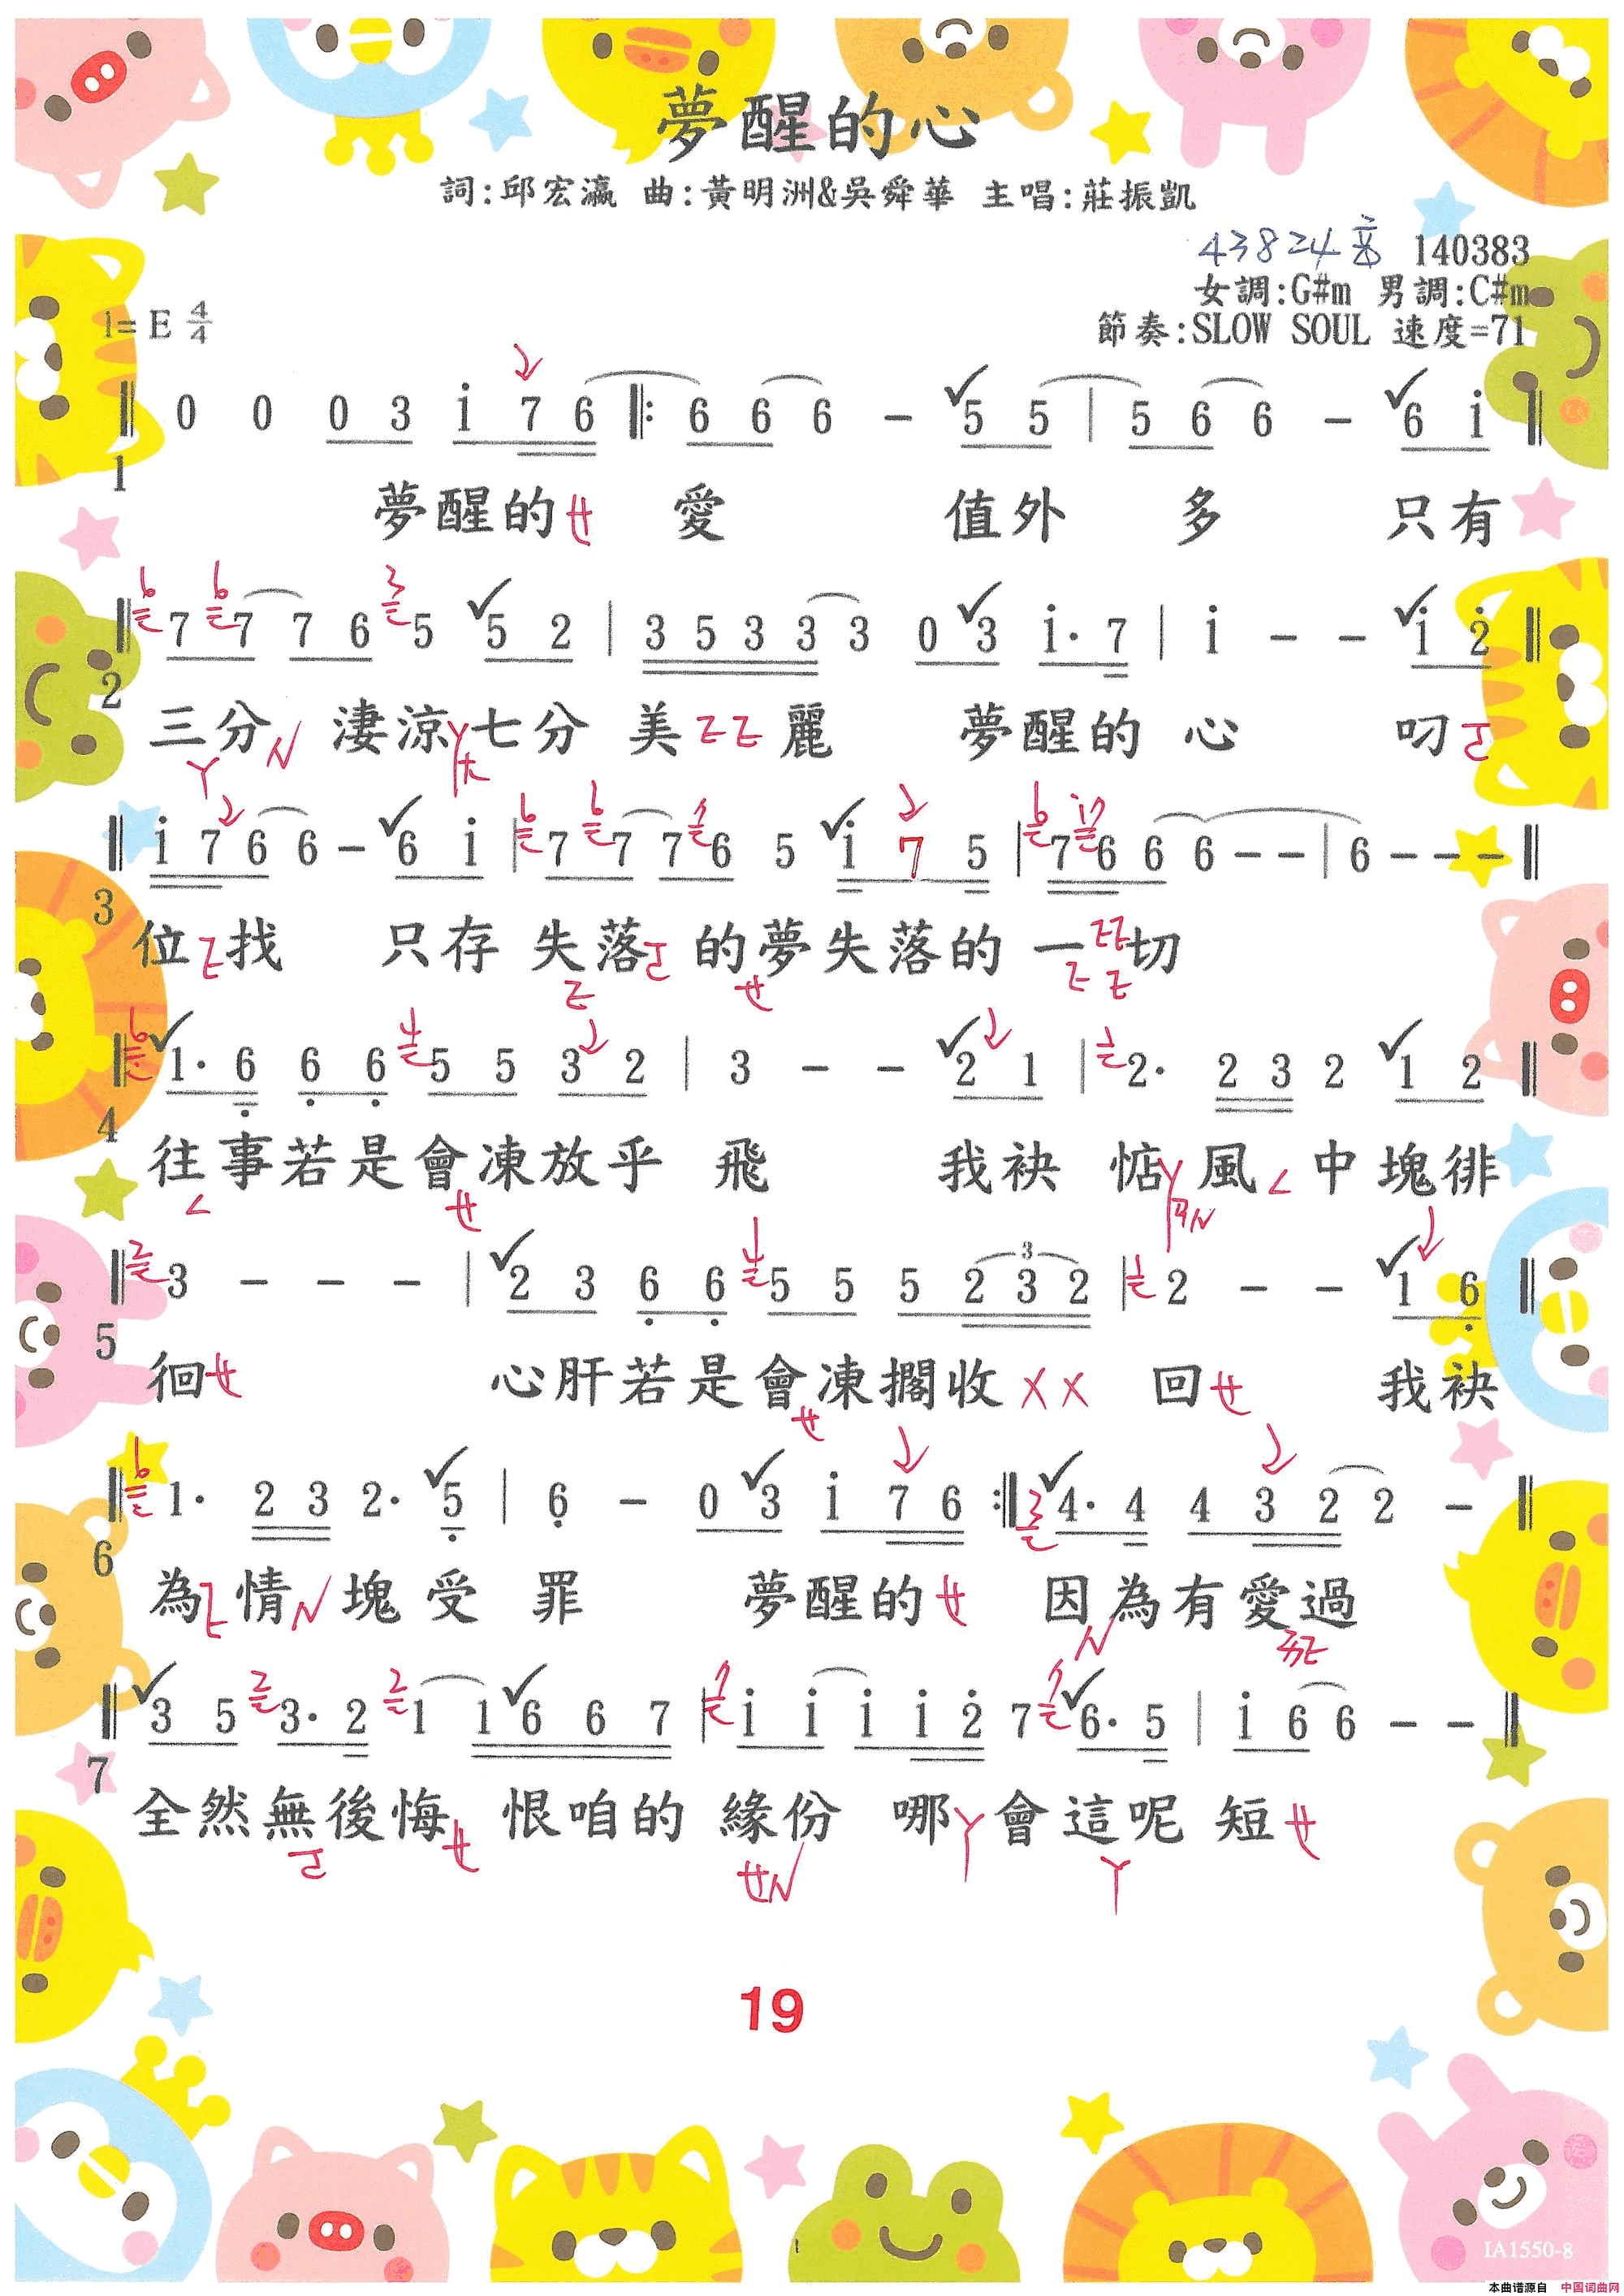 夢醒的心
詞:邱宏瀛 曲:黃明洲&吳舜華 主唱:莊振凱
43824音 140383
女調:G#m 男調:C#m
1=E 4/4
節奏:SLOW SOUL 速度=71
0 0 0 3 i 7 6 ‖: 6 6 6 - 5 5 | 5 6 6 - 6 i
1
夢醒的ㄝ 愛 值外 多 只有
7 7 7 6 5 5 2 | 3 5 3 3 3 0 3 i· 7 | i - - i 2̇
2
三分 淒涼 七分 美 ㄛㄛ 麗 夢醒的 心 叨
i 7 6 6 - 6 i | 7 7 7 6 5 i 7 5 | 7 6 6 6 - - | 6 - - -
3
位 找 只存 失落 的夢失落的 一 切
1· 6̣ 6̣ 6̣ 5 5 3 2 | 3 - - 2 1 | 2· 2 3 2 1 2
4
往事若是會凍放乎 飛 我袂 惦 風 中塊徘
3 - - - | 2 3 6̣ 6̣ 5 5 5 2 3 2 | 2 - - 1 6̣
5
徊ㄝ 心肝若是會凍擱收 ㄨㄨ 回ㄝ 我袂
1· 2 3 2· 5̣ | 6̣ - 0 3 i 7 6 :‖ 4· 4 4 3 2 2 -
6
為 情 塊 受 罪 夢醒的ㄝ 因為有愛過
3 5 3· 2 1 1 6 6 7 | i i i i 2̇ 7 6· 5 | i 6 6 - -
7
全然無後悔ㄝ 恨咱的 緣份 哪ㄚ會這呢 短ㄝ
19
IA1550-8
本曲谱源自 中国词曲网